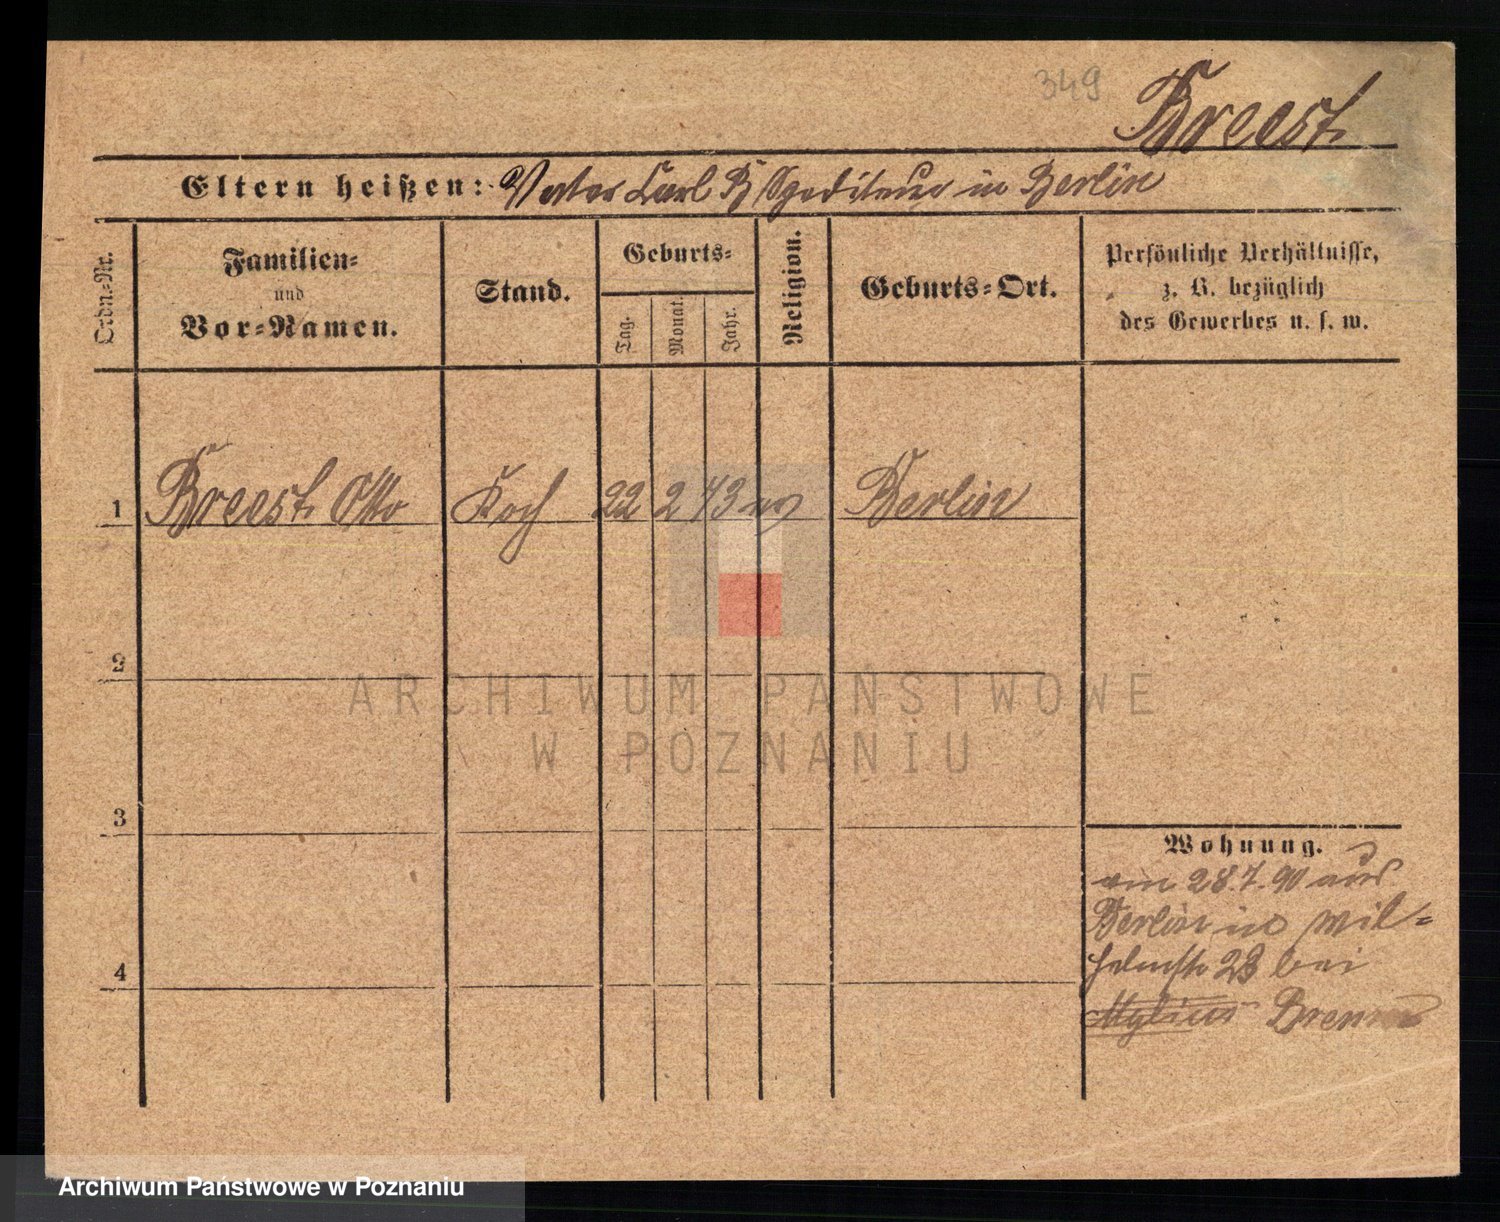 349
Breest.
Eltern heißen: Vater Carl B Spediteur in Berlin
Ordn.-Nr.
Familien-
und
Vor-Namen.
Stand.
Geburts-
Tag.
Monat.
Jahr.
Religion.
Geburts-Ort.
Persönliche Verhältnisse,
z. B. bezüglich
des Gewerbes u. s. w.
1 Breest Otto Koch 22 2 73 ev Berlin
2
3
4
Wohnung.
am 28.7.90 aus
Berlin in Wil-
helmstr 23 bei
Mylius
ARCHIWUM PAŃSTWOWE
W POZNANIU
Archiwum Państwowe w Poznaniu